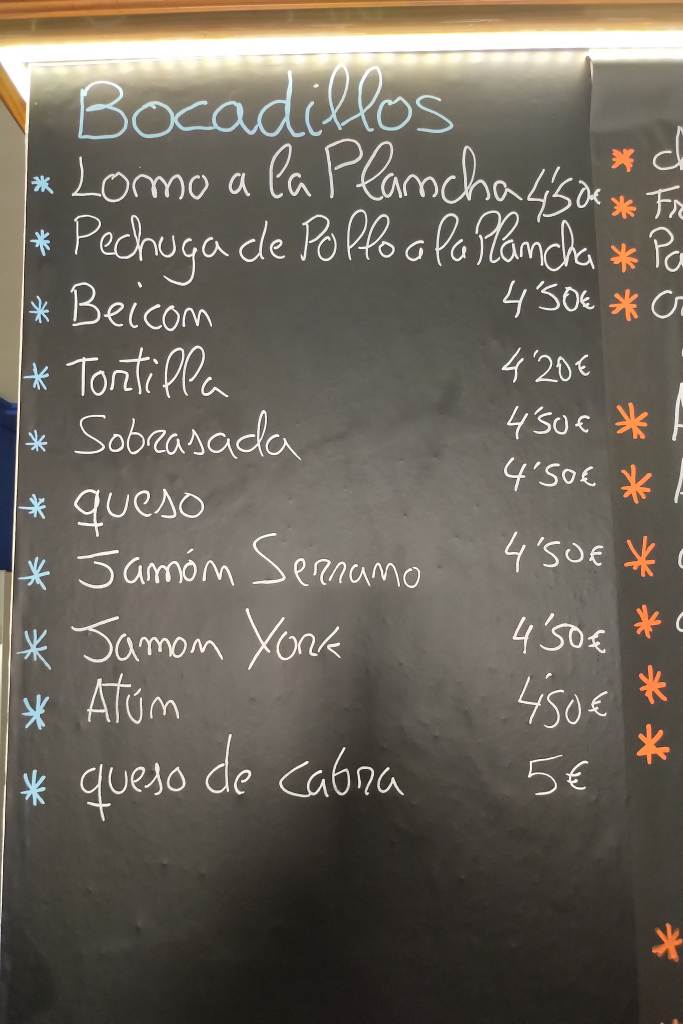 Bocadillos
* Lomo a la Plancha 4'50€
* Pechuga de Pollo a la Plancha
* Beicon 4'50€
* Tortilla 4'20€
* Sobrasada 4'50€
* queso 4'50€
* Jamón Serrano 4'50€
* Jamon York 4'50€
* Atún 4'50€
* queso de cabra 5€